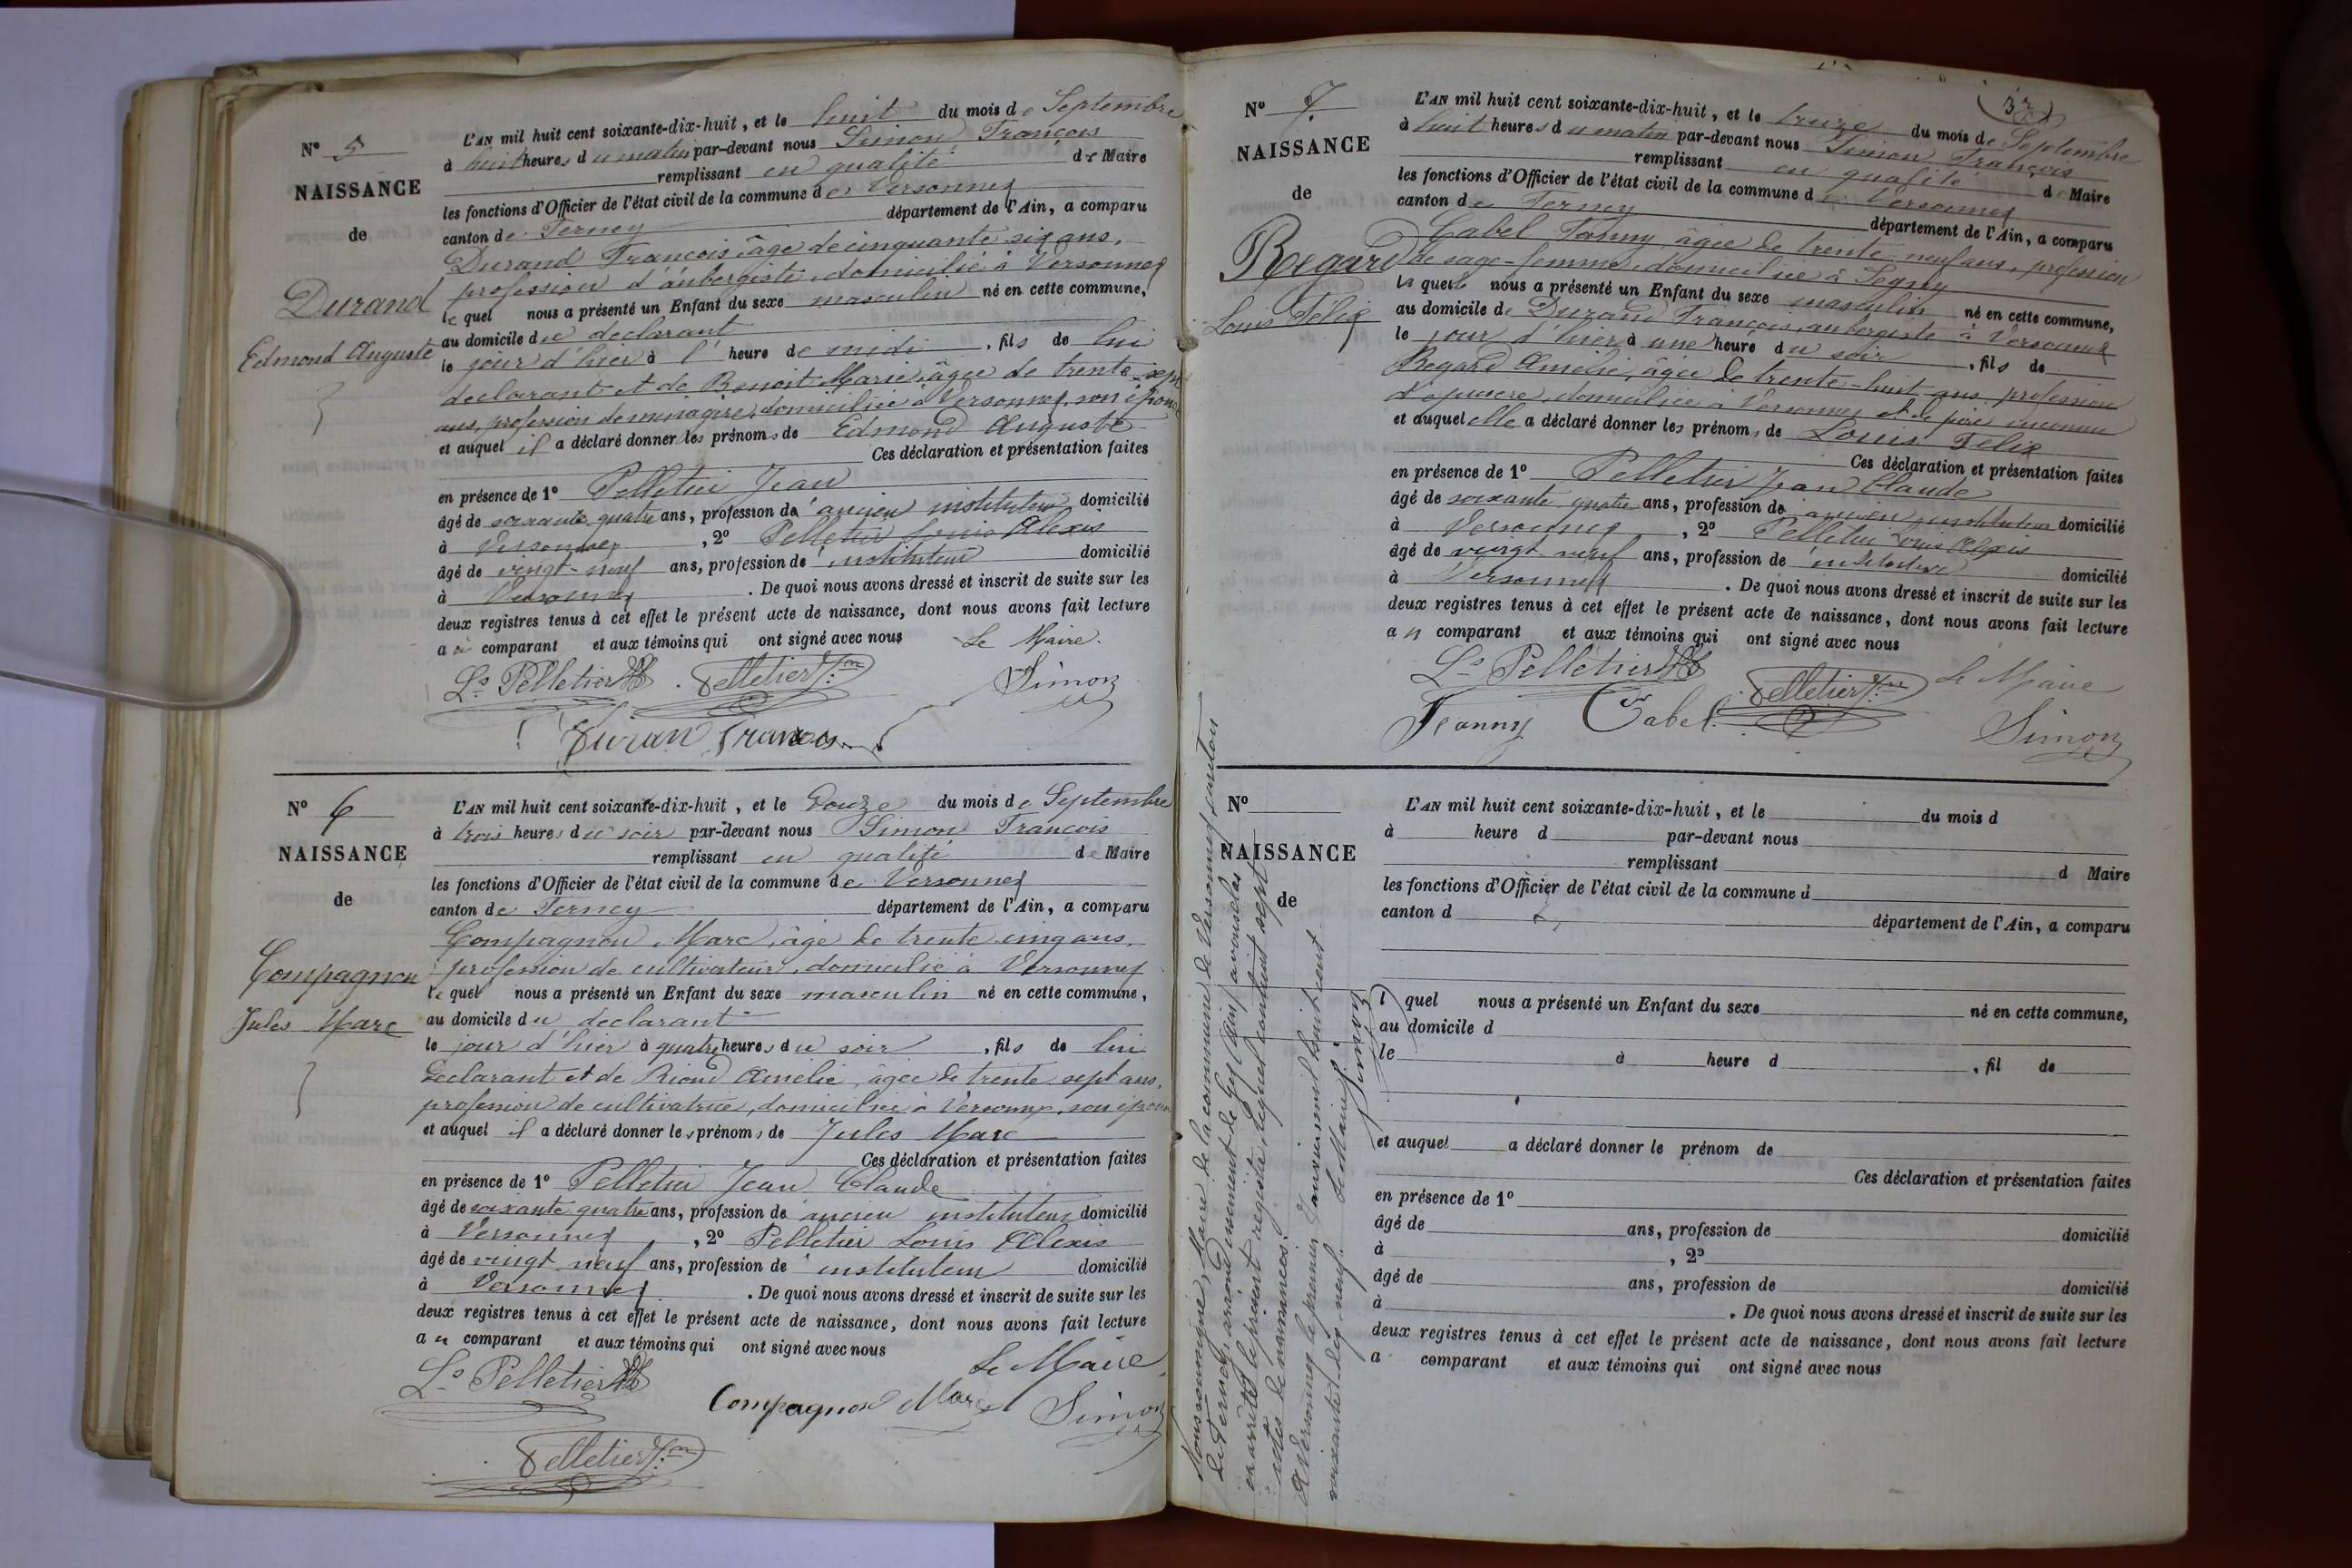 N° 5
NAISSANCE
de
Durand
Edmond Auguste
L'AN mil huit cent soixante-dix-huit, et le huit du mois de Septembre
à huit heures du matin par-devant nous Simon François
remplissant en qualité de Maire
les fonctions d'Officier de l'état civil de la commune de Versonnex
canton de Ferney département de l'Ain, a comparu
Durand François âgé de cinquante six ans,
profession d'aubergiste, domicilié à Versonnex
le quel nous a présenté un Enfant du sexe masculin né en cette commune,
au domicile du déclarant
le jour d'hier à l' heure de midi, fils de lui
déclarant et de Benoit Marie, âgée de trente-sept
ans, profession de ménagère, domiciliée à Versonnex, son épouse
et auquel il a déclaré donner les prénoms de Edmond Auguste
Ces déclaration et présentation faites
en présence de 1° Pelletier Jean
âgé de soixante quatre ans, profession d'ancien instituteur domicilié
à Versonnex, 2° Pelletier Louis Alexis
âgé de vingt-neuf ans, profession d'instituteur domicilié
à Versonnex. De quoi nous avons dressé et inscrit de suite sur les
deux registres tenus à cet effet le présent acte de naissance, dont nous avons fait lecture
au comparant et aux témoins qui ont signé avec nous Le Maire.
Ls Pelletier Pelletier Jn Simon
Duran Francois
N° 6
NAISSANCE
de
Compagnon
Jules Marc
L'AN mil huit cent soixante-dix-huit, et le douze du mois de Septembre
à trois heures du soir par-devant nous Simon François
remplissant en qualité de Maire
les fonctions d'Officier de l'état civil de la commune de Versonnex
canton de Ferney département de l'Ain, a comparu
Compagnon, Marc, âgé de trente cinq ans,
profession de cultivateur, domicilié à Versonnex
le quel nous a présenté un Enfant du sexe masculin né en cette commune,
au domicile du déclarant
le jour d'hier à quatre heures du soir, fils de lui
déclarant et de Riond Amélie, âgée de trente sept ans,
profession de cultivatrice, domiciliée à Versonnex, son épouse
et auquel il a déclaré donner les prénoms de Jules Marc
Ces déclaration et présentation faites
en présence de 1° Pelletier Jean Claude
âgé de soixante quatre ans, profession d'ancien instituteur domicilié
à Versonnex, 2° Pelletier Louis Alexis
âgé de vingt neuf ans, profession d'instituteur domicilié
à Versonnex. De quoi nous avons dressé et inscrit de suite sur les
deux registres tenus à cet effet le présent acte de naissance, dont nous avons fait lecture
au comparant et aux témoins qui ont signé avec nous
Le Maire
Ls Pelletier Compagnon Marc Simon
Pelletier Jn
N° 7
NAISSANCE
de
Regard
Louis Félix
L'AN mil huit cent soixante-dix-huit, et le treize du mois de Septembre
à huit heures du matin par-devant nous Simon François
remplissant en qualité de Maire
les fonctions d'Officier de l'état civil de la commune de Versonnex
canton de Ferney département de l'Ain, a comparu
Cabel Fanny, âgée de trente-neuf ans, profession
de sage-femme, domiciliée à Segny
la quelle nous a présenté un Enfant du sexe masculin né en cette commune,
au domicile de Durand François, aubergiste à Versonnex
le jour d'hier à une heure du soir, fils de
Regard Amélie, âgée de trente-huit ans, profession
domiciliée à Versonnex et de père inconnu
et auquel elle a déclaré donner les prénoms de Louis Félix
Ces déclaration et présentation faites
en présence de 1° Pelletier Jean Claude
âgé de soixante quatre ans, profession d'ancien instituteur domicilié
à Versonnex, 2° Pelletier Louis Alexis
âgé de vingt neuf ans, profession d'instituteur domicilié
à Versonnex. De quoi nous avons dressé et inscrit de suite sur les
deux registres tenus à cet effet le présent acte de naissance, dont nous avons fait lecture
au comparant et aux témoins qui ont signé avec nous
Ls Pelletier Pelletier Jn Le Maire
Fanny Cabel Simon
N°
NAISSANCE
de
L'AN mil huit cent soixante-dix-huit, et le du mois d
à heure d par-devant nous
remplissant d Maire
les fonctions d'Officier de l'état civil de la commune d
canton d département de l'Ain, a comparu
l quel nous a présenté un Enfant du sexe né en cette commune,
au domicile d
le à heure d, fil de
et auquel a déclaré donner le prénom de
Ces déclaration et présentation faites
en présence de 1°
âgé de ans, profession de domicilié
à, 2°
âgé de ans, profession de domicilié
à. De quoi nous avons dressé et inscrit de suite sur les
deux registres tenus à cet effet le présent acte de naissance, dont nous avons fait lecture
a comparant et aux témoins qui ont signé avec nous
Nous soussigné, Maire de la commune de Versonnex, canton
de Ferney, arrondissement de Gex (Ain), avons clos
et arrêté le présent registre, lequel contient sept
actes de naissances.
A Versonnex le premier Janvier mil huit cent
soixante-dix-neuf. Le Maire,
Simon